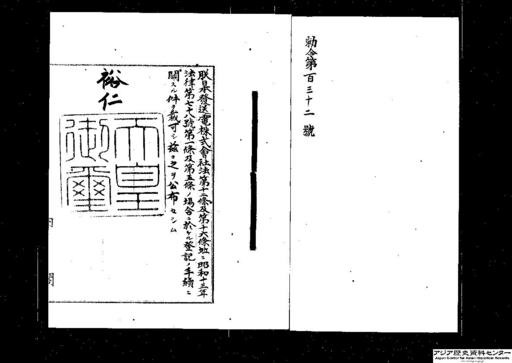 勅令第百三十二號
朕日本發送電株式會社法第十二條及第十六條竝ニ昭和十三年
法律第七十八號第一條及第五條ノ場合ニ於ケル登記ノ手續ニ
關スル件ヲ裁可シ玆ニ之ヲ公布セシム
裕仁
天皇
御璽
内閣
アジア歴史資料センター
Japan Center for Asian Historical Records